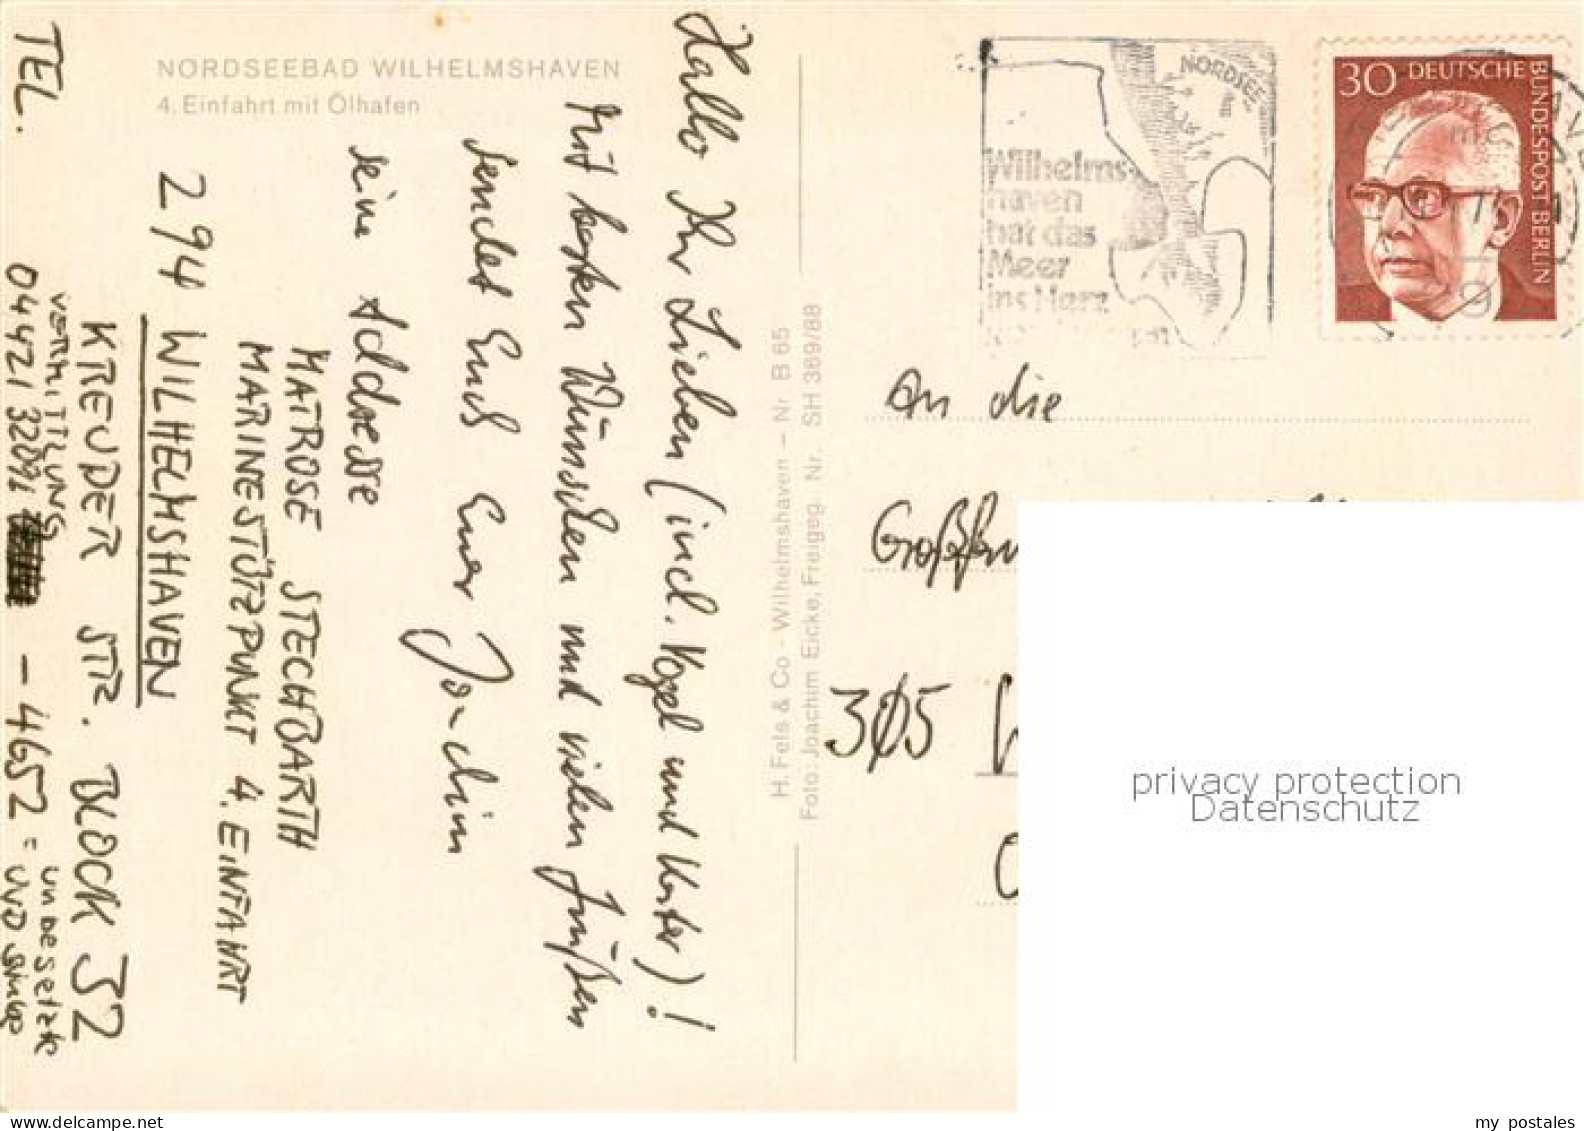 NORDSEEBAD WILHELMSHAVEN
4. Einfahrt mit Ölhafen
Hallo Ihr Lieben (incl. Vogel und Kater)!
Mit besten Wünschen und vielen Grüßen
sendet Euch Euer Joachim
seine Addresse
MATROSE STECHBARTH
MARINESTÜTZPUNKT 4. EINFAHRT
294 WILHELMSHAVEN
KREUDER STR. BLOCK 52
VERMITTLUNG
TEL. 04421 32091 - 4652 =
unbesetzte
UVD
H. Fels & Co - Wilhelmshaven - Nr. B 65
Foto: Joachim Eicke, Freigeg. Nr. SH 369/88
NORDSEE
Wilhelms-
haven
hat das
Meer
ins Herz
30 DEUTSCHE BUNDESPOST BERLIN
An die
305
privacy protection
Datenschutz
my postales